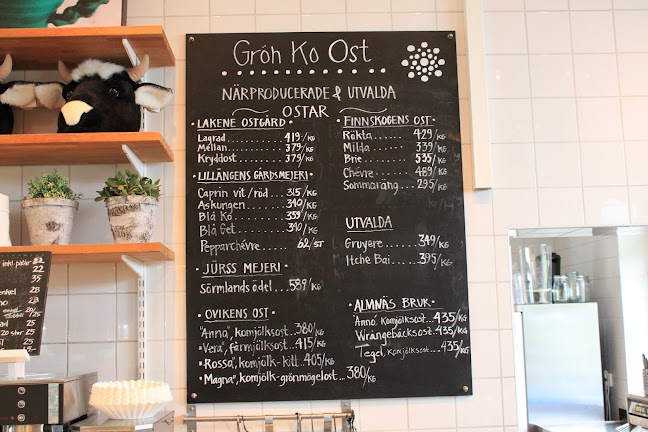 Grön Ko Ost
NÄRPRODUCERADE & UTVALDA
OSTAR
• LAKENE OSTGÅRD •
Lagrad ...... 419:/KG
Mellan ....... 379/KG
Kryddost ..... 379/KG
• LILLÄNGENS GÅRDSMEJERI •
Caprin vit/röd ... 315/KG
Askungen ..... 340/KG
Blå Ko ....... 359/KG
Blå Get ...... 340/KG
Pepparchévre ..... 62/ST
• JÜRSS MEJERI •
Sörmlands ädel ... 589/KG
• OVIKENS OST •
"Anna", komjölksost ... 380/KG
"Vera", fårmjölksost ... 415/KG
"Rossa", komjölk-kitt ... 405/KG
"Magna", komjölk-grönmögelost ... 380/KG
• FINNSKOGENS OST •
Rökta ...... 429/KG
Milda ...... 339/KG
Brie ...... 535/KG
Chévre ..... 489/KG
Sommaräng ... 295/KG
UTVALDA
Gruyere ...... 349/KG
Itche Bai ..... 395/KG
• ALMNÄS BRUK •
Anno, Komjölksost ... 435/KG
Wrångebäcksost ... 435/KG
Tegel, komjölksost ... 435/KG
inkl. påtår 22
25
32